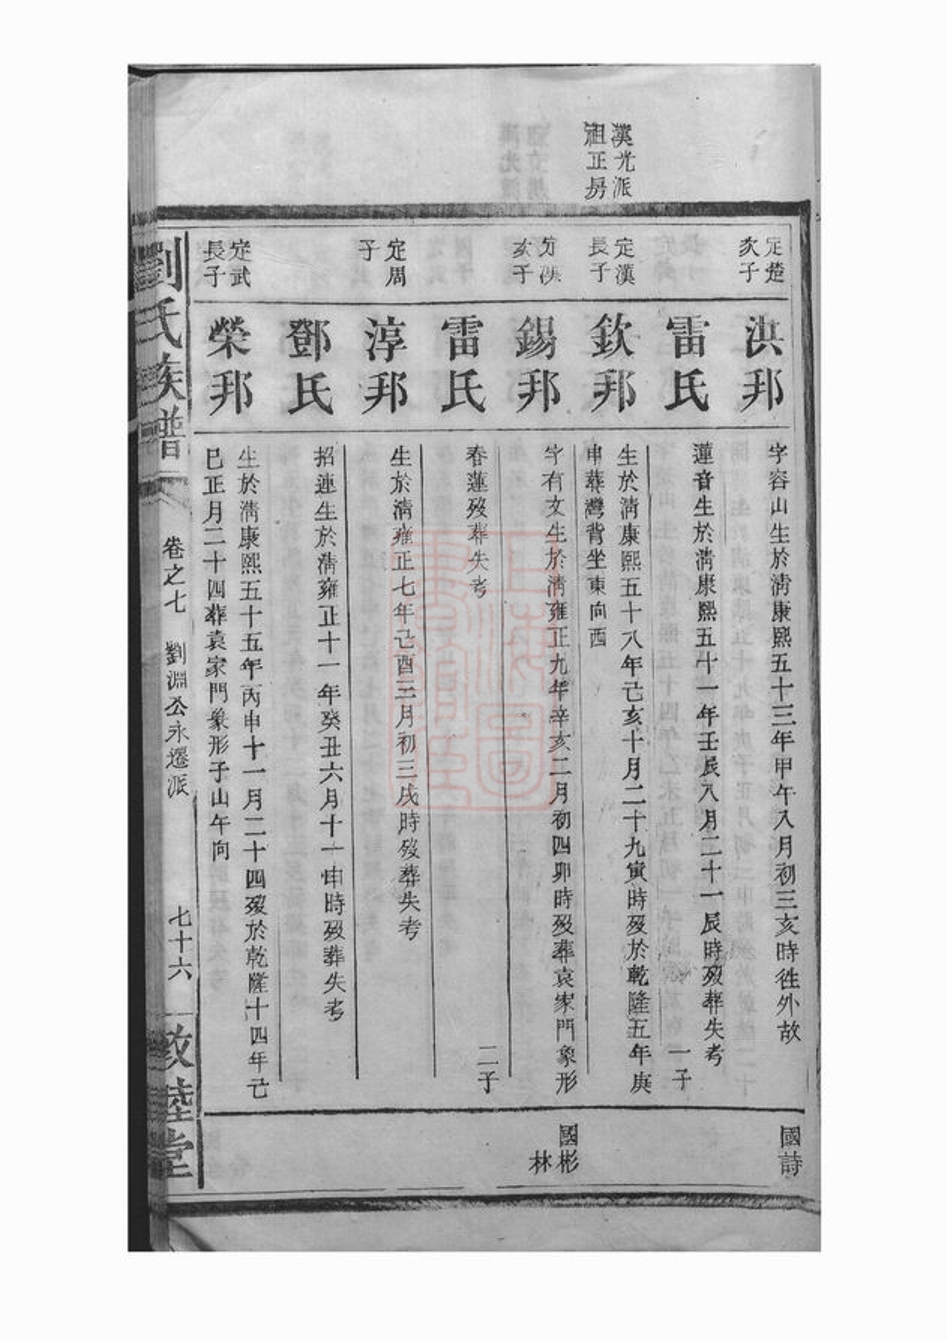 漢光派
祖正房
定楚
次子
洪邦
字容山生於清康熙五十三年甲午八月初三亥時徃外故
國詩
雷氏
蓮音生於清康熙五十一年壬辰八月二十一辰時歿葬失考
一子
定漢
長子
欽邦
生於清康熙五十八年己亥十月二十九寅時歿於乾隆五年庚
申葬灣背坐東向西
定漢
次子
錫邦
字有文生於清雍正九年辛亥二月初四卯時歿葬袁家門象形
國彬
林
雷氏
春蓮歿葬失考
二子
定周
子
淳邦
生於清雍正七年己酉三月初三戌時歿葬失考
鄧氏
招連生於清雍正十一年癸丑六月十一申時歿葬失考
定武
長子
榮邦
生於清康熙五十五年丙申十一月二十四歿於乾隆十四年己
巳正月二十四葬袁家門象形子山午向
劉氏族譜
卷之七
劉淵公永遷派
七十六
敦睦堂